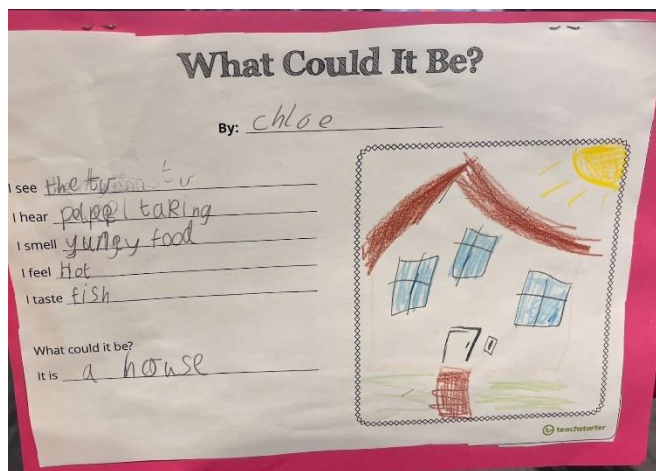 What Could It Be?
By: chloe
I see the tv
I hear pelpel taking
I smell yungy food
I feel Hot
I taste fish
What could it be?
It is a house
teachstarter